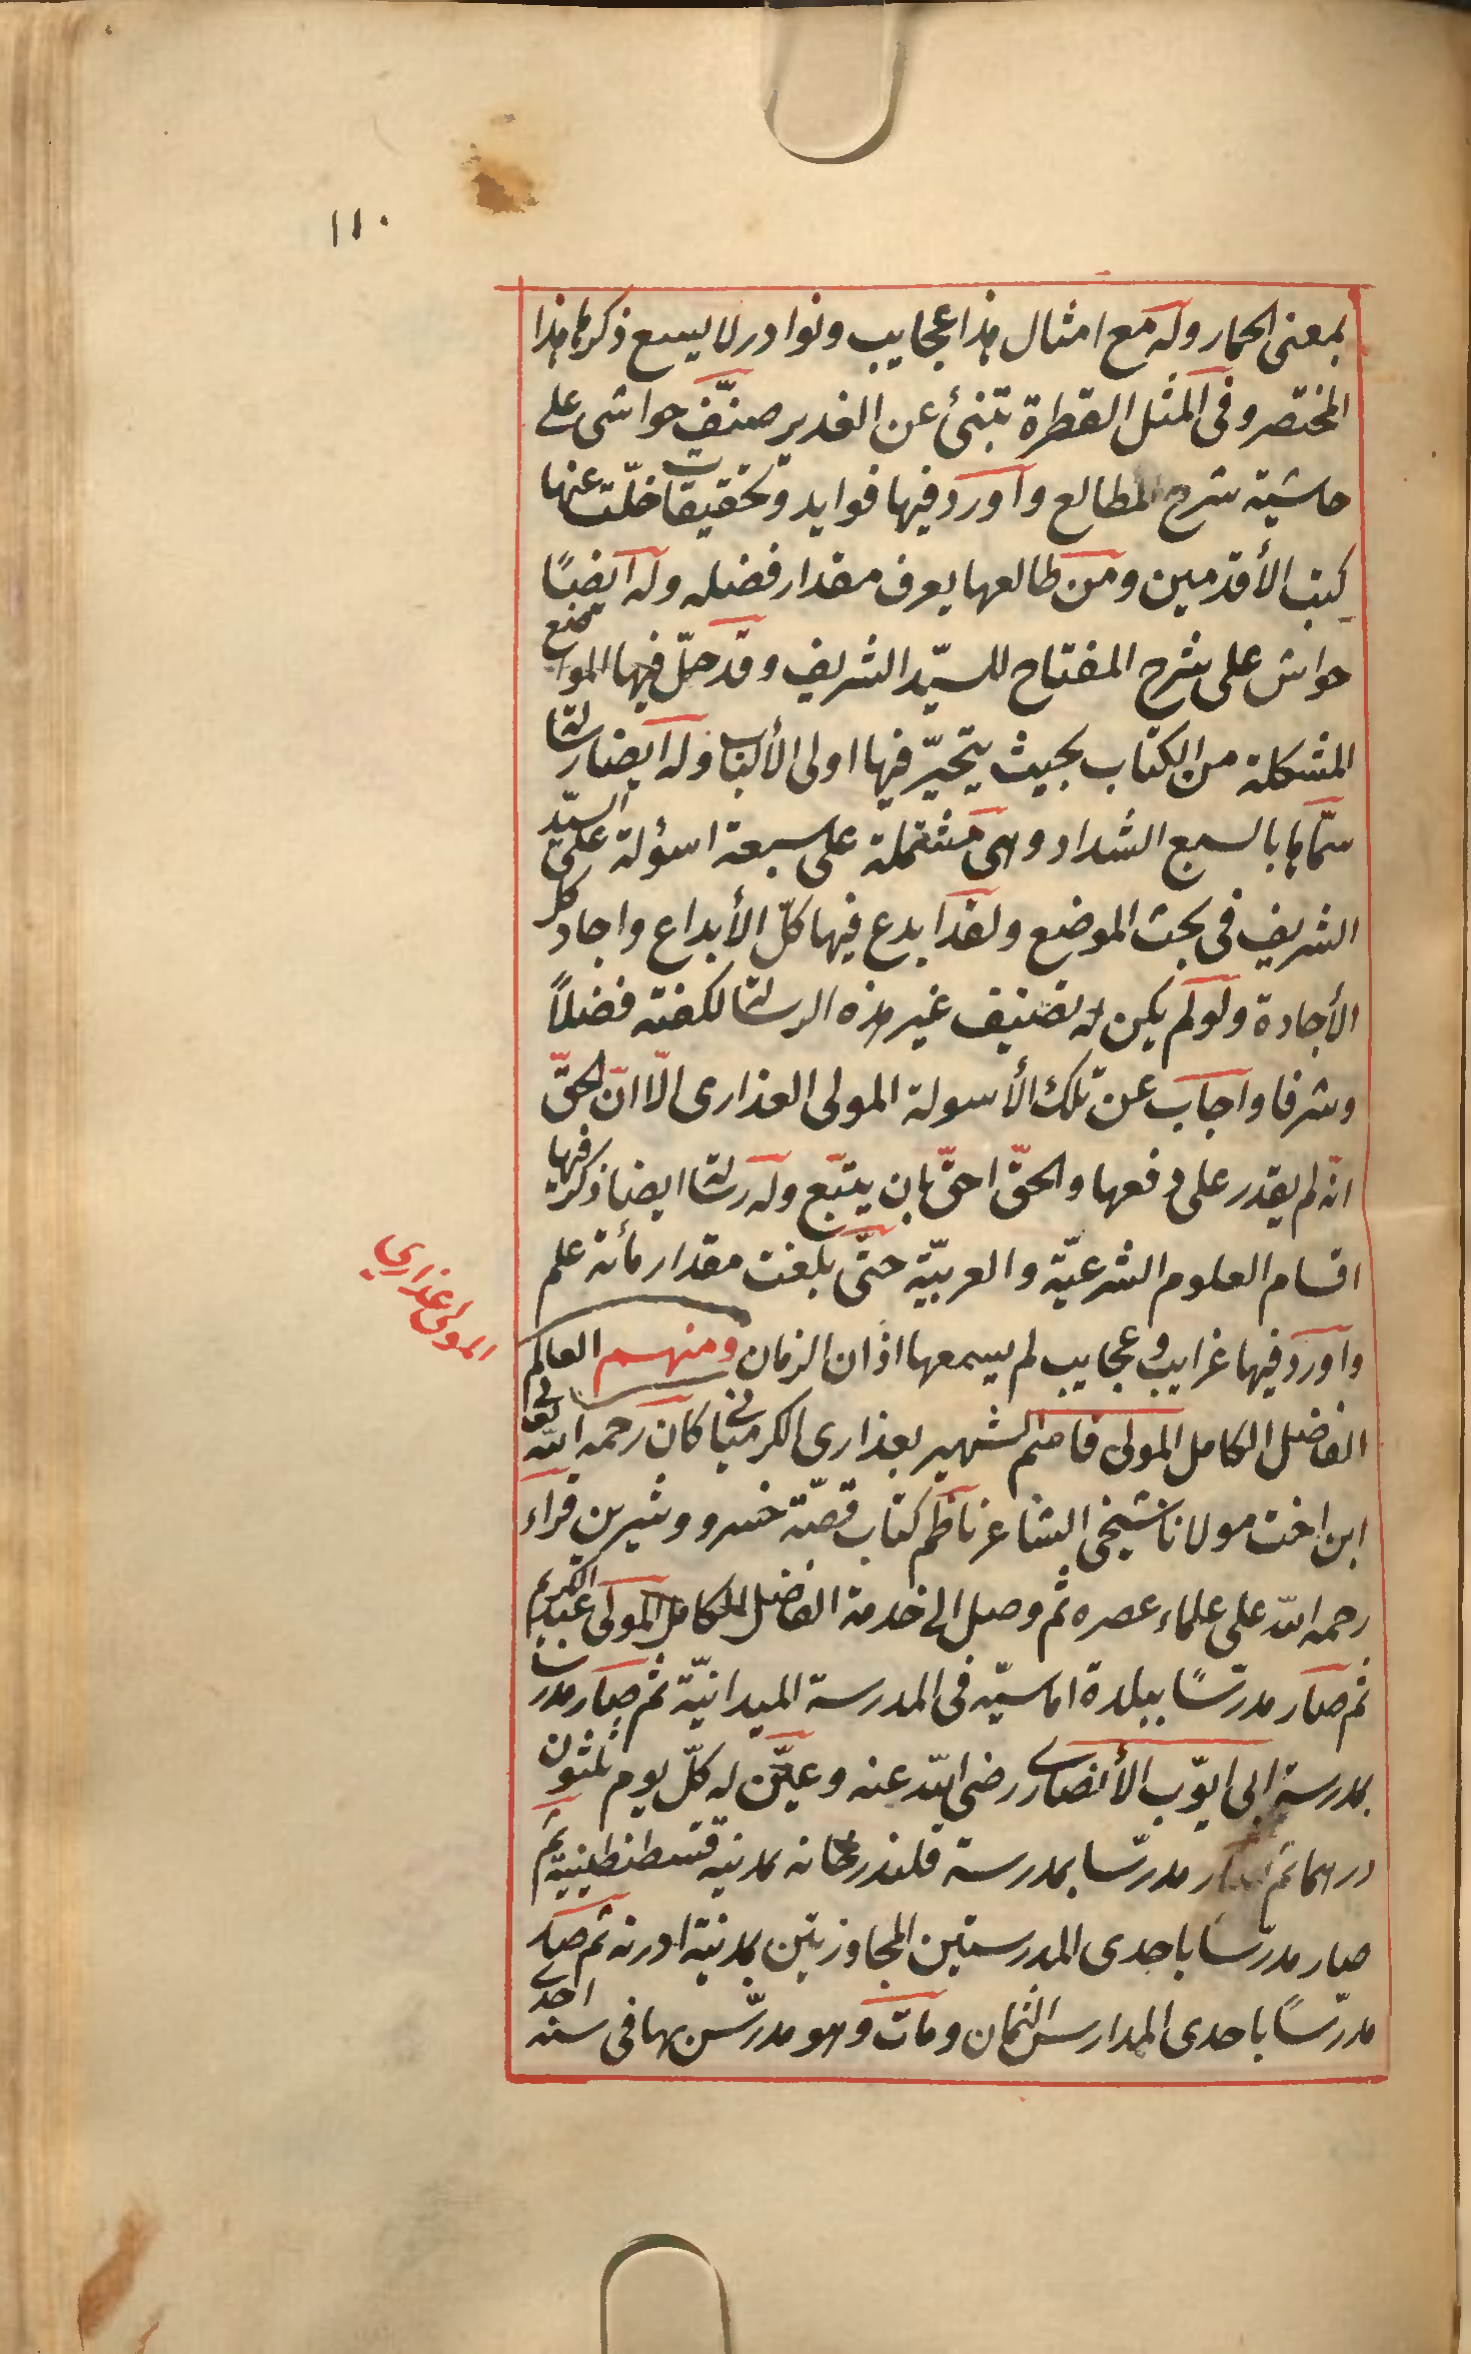 ١١٠
بمعنى الحمار وله مع امثال هذا عجايب ونوادر لا يسع ذكرها هذا
المختصر وفى المثل القطرة تنبئ عن الغدير صنّف حواشى على
حاشية شرح المطالع وأورد فيها فوايد وتحقيقات خلّت عنها
كتب الأقدمين ومن طالعها يعرف مقدار فضله وله أيضًا
حواش على شرح المفتاح للسيّد الشريف وقد حلّ فيها المواضع
المشكلة من الكتاب بحيث يتحيّر فيها اولى الألباب وله ايضا رسالة
سمّاها بالسبع الشداد وهى مشتملة على سبعة اسؤلة على السيّد
الشريف فى بحث الموضع ولقد ابدع فيها كلّ الأبداع واجاد كل
الأجادة ولو لم يكن له تصنيف غير هذه الرسالة لكفته فضلًا
وشرفا واجاب عن تلك الأسولة المولى العذارى الّا انّ الحقّ
انّه لم يقدر على دفعها والحقّ احقّ بان يتّبع وله رسالة ايضا ذكر فيها
اقسام العلوم الشرعيّة والعربيّة حتّى بلغت مقدار مأئة علم
المولى عذاري
وأورد فيها غرايب وعجايب لم يسمعها اذان الزمان ومنهم العالم
الفاضل الكامل المولى قاسم الشهير بعذارى الكرميانى كان رحمه الله تعالى
ابن اخت مولانا شيخى الشاعر ناظم كتاب قصّة خسرو وشيرين قراء
رحمه الله على علماء عصره ثم وصل الى خدمة الفاضل الكامل المولى عبد الكريم
ثم صار مدرّسًا ببلدة اماسيّه فى المدرسة الميدانيّة ثم صار مدرسا
بمدرسة ابى ايّوب الأنصارى رضى الله عنه وعيّن له كلّ يوم ثلثون
درهما ثم صار مدرّسا بمدرسة قلندرخانه بمدينة قسطنطينية ثم
صار مدرّسا باحدى المدرستين المجاورتين بمدينة ادرنه ثم صار
مدرّسًا باحدى المدارس الثمان ومات وهو مدرّس بها فى سنه احدى